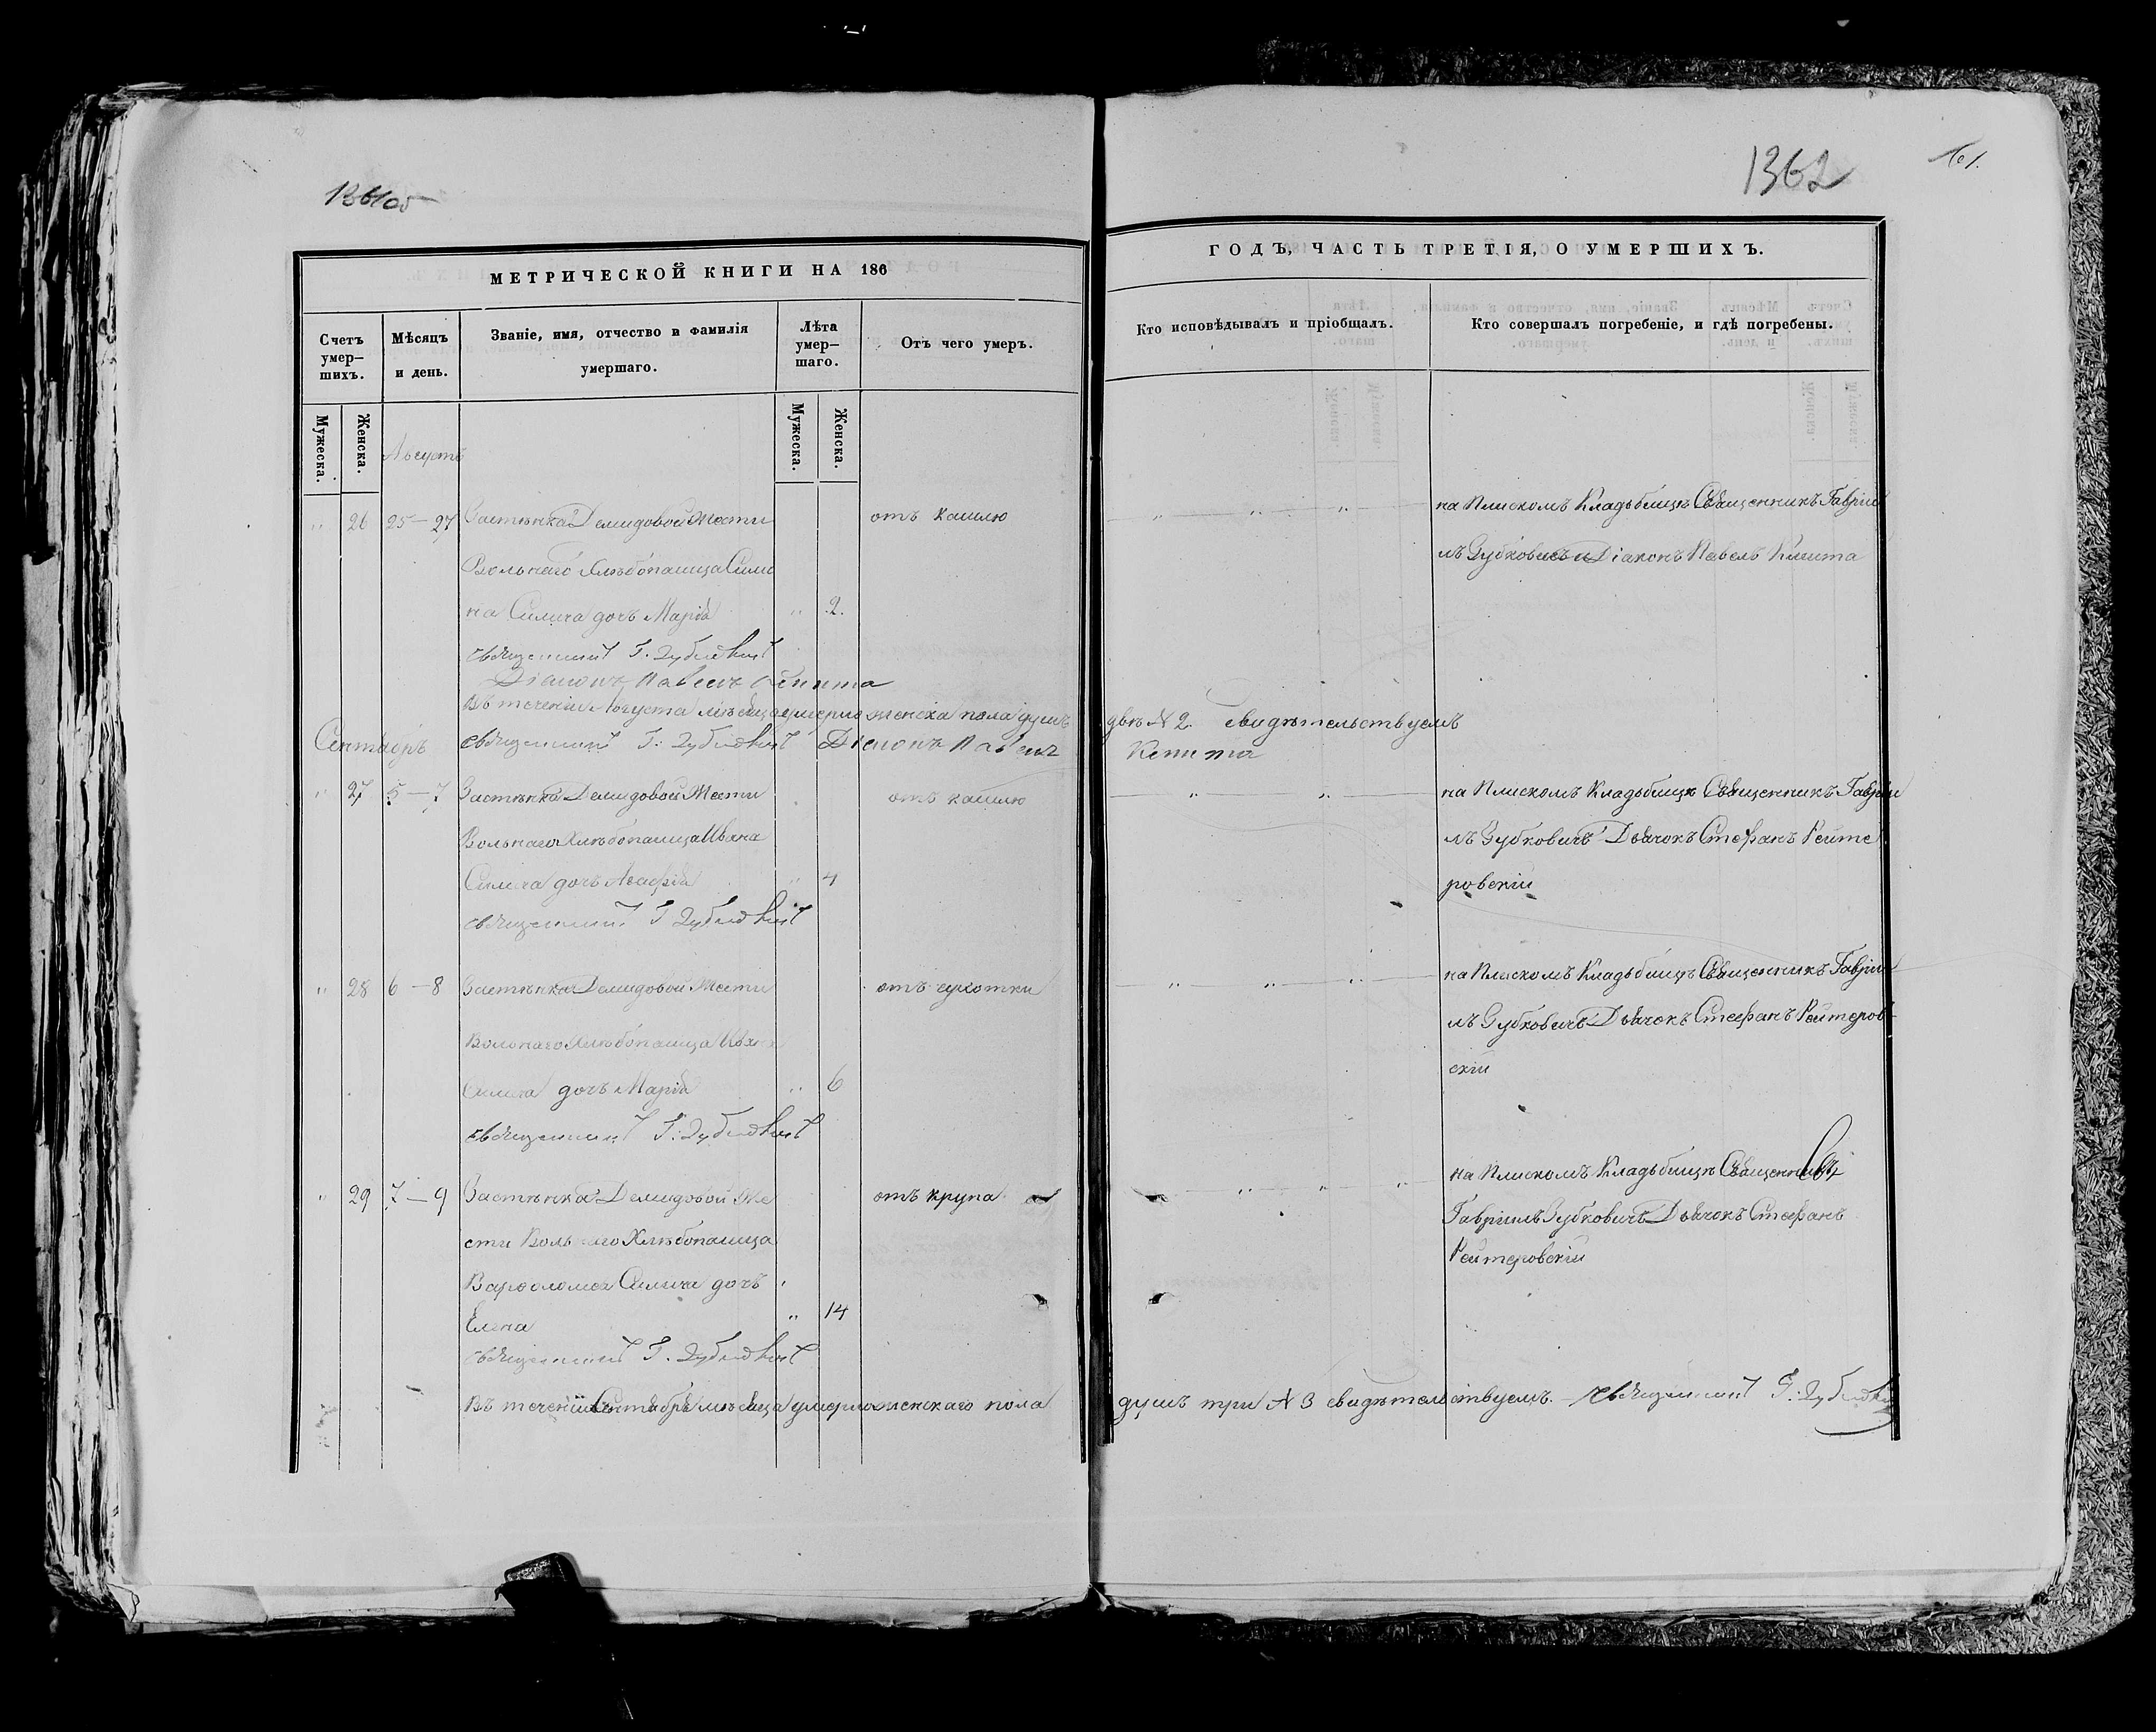 1361 об
МЕТРИЧЕСКОЙ КНИГИ НА 186
Счетъ умер-шихъ.
Мѣсяцъ и день.
Званіе, имя, отчество и фамилія умершаго.
Лѣта умер-шаго.
Отъ чего умеръ.
Мужеска.
Женска.
Мужеска.
Женска.
Августъ
" 26 25–27 Застѣнка Демидовой Жести отъ кашлю
Вольнаго Хлѣбопашца Сими
на Силича дочь Марія " 2.
священникъ Г. Зубковичъ
Діаконъ Павелъ
Въ теченіи Августа мѣсяца умерло женска пола душъ
Сентябрь священникъ Г: Зубковичъ Діаконъ Павелъ
" 27 5–7 Застѣнка Демидовой Жести отъ кашлю
Вольнаго Хлѣбопашца Ивана
Силича дочь Агафія " 4
священникъ Г Зубковичъ
" 28 6–8 Застѣнка Демидовой Жести отъ сухотки
Вольнаго Хлѣбопашца Ивана
Силича дочь Марія " 6
священникъ Г: Зубковичъ
" 29 7–9 Застѣнка Демидовой Же отъ крупа
сти Вольнаго Хлѣбопашца
Варфоломея Силича дочь
Елена " 14
священникъ Г. Зубковичъ
Въ теченіи Сентября мѣсяца умерло женскаго пола
1362
ГОДЪ, ЧАСТЬ ТРЕТІЯ, О УМЕРШИХЪ.
Кто исповѣдывалъ и пріобщалъ.
Кто совершалъ погребеніе, и гдѣ погребены.
на Плискомъ Кладьбищѣ Священникъ Гавріи
лъ Зубковичъ и Діаконъ Павелъ
двѣ № 2. свидѣтельствуемъ
на Плискомъ Кладьбищѣ Священникъ Гавріи
лъ Зубковичъ Дьячокъ Стефанъ Рейте
ровскій
на Плискомъ Кладьбищѣ Священникъ Гавріи
лъ Зубковичъ Дьячокъ Стефанъ Рейтеров-
скій
на Плискомъ Кладьбищѣ Священникъ
Гавріилъ Зубковичъ Дьячокъ Стефанъ
Рейтеровскій
душъ три № 3 свидѣтельствуемъ. – священникъ Г: Зубковичъ